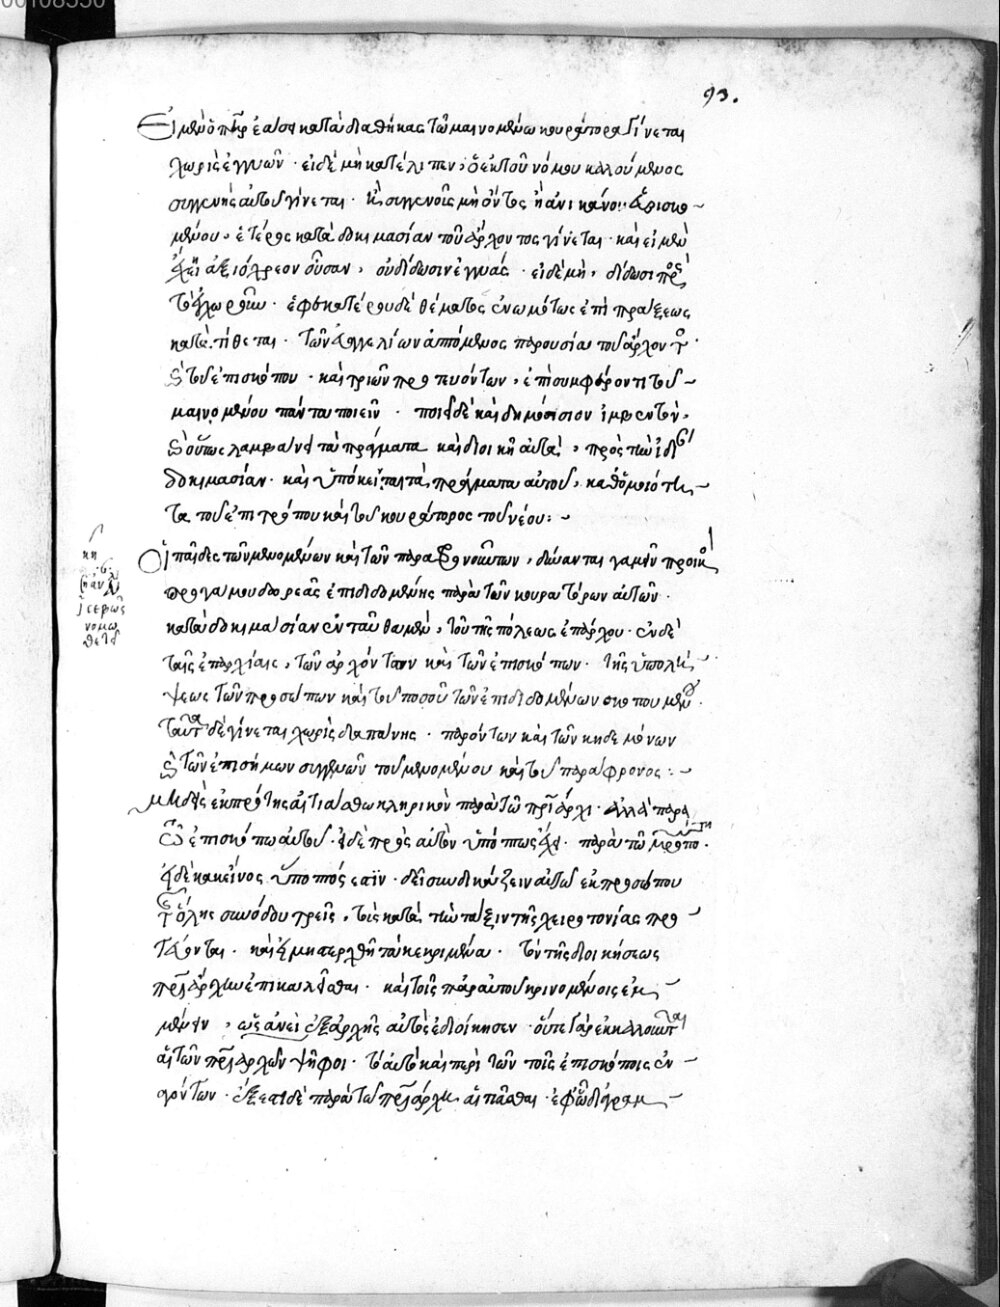 93.
Εἰ μὲν ὁ πατὴρ ἐάσει κατὰ διαθήκας τῶ μαινομένω κουράτορα γίνεται
χωρὶς ἐγγυῶν · εἰ δὲ μὴ κατέλιπεν, ὁ ἐκ τοῦ νόμου καλούμενος
συγγενὴς αὐτοῦ γίνεται · συγγενοῦς μὴ ὄντος ἢ ἀνικάνου εὑρισκο-
μένου, ἕτερος κατὰ δοκιμασίαν τοῦ ἄρχοντος γίνεται · καὶ εἰ μὲν
ἔχει ἀξιόχρεον οὐσίαν, οὐ δίδωσιν ἐγγυάς · εἰ δὲ μὴ, δίδωσι πρὸς
κατατίθεται · τῶν εὐαγγελίων ἁπτόμενος παρουσία τοῦ ἄρχοντος
καὶ τοῦ ἐπισκόπου · καὶ τριῶν πρωτευόντων, ἐπὶ συμφέροντι τοῦ
μαινομένου πάντα ποιεῖν · ποιεῖ δὲ καὶ δημόσιον ἰμβεντον,
καὶ οὕτως λαμβάνει τὰ πράγματα καὶ διοικῆ αὐτὰ, πρὸς τὴν ἰδίαν
δοκιμασίαν · καὶ ὑπόκειται τὰ πράγματα αὐτοῦ, καθ' ὁμοιότη-
τα τοῦ ἐπιτρόπου καὶ τοῦ κουράτορος τοῦ νέου :-
Οἱ παῖδες τῶν μαινομένων καὶ τῶν παραφρονούντων, δύνανται γαμεῖν προικὸς
προγάμου δωρεᾶς ἐπιδιδομένης παρὰ τῶν κουρατόρων αὐτῶν ·
κατὰ δοκιμασίαν ἐνταῦθα μὲν, τοῦ τῆς πόλεως ἐπάρχου · ἐν δὲ
ταῖς ἐπαρχίαις, τῶν ἀρχόντων καὶ τῶν ἐπισκόπων · τῆς ὑπολή-
ψεως τῶν προσώπων καὶ τοῦ ποσοῦ τῶν ἐπιδιδομένων σκοπουμένου ·
ταῦτα δὲ γίνεται χωρὶς δαπάνης · παρόντων καὶ τῶν κηδεμόνων
καὶ τῶν ἐπισήμων συγγενῶν τοῦ μαινομένου καὶ τοῦ παράφρονος :-
Μηδεὶς ἐκ πρώτης αἰτιάσθω κληρικὸν παρὰ τῶ πατριάρχη · ἀλλὰ παρὰ
τῶ ἐπισκόπω αὐτοῦ · εἰ δὲ πρὸς αὐτὸν ὑπόπτως ἔχει · παρὰ τῶ μητροπο·
εἰ δὲ κακεῖνος ὕποπτός ἐστιν · δεῖ συνδικάζειν αὐτῶ ἐκ προσώπου
τῆς ὅλης συνόδου τρεῖς, τοὺς κατὰ τὴν τάξιν τῆς χειροτονίας προ-
τεύονται · καὶ εἰ μὴ στερχθῆ τὰ κεκριμένα · τὸν τῆς διοικήσεως
πατριάρχην ἐπικαλεῖσθαι · καὶ τοῖς παρ' αὐτοῦ κρινομένοις ἐμ-
μένειν, ὡς ἀνεὶ ἐξ ἀρχῆς αὐτὸς ἐδιοίκησεν · οὔτε γὰρ ἐκκαλοῦνται
αἱ τῶν πατριαρχῶν ψῆφοι · τὸ αὐτὸ καὶ περὶ τῶν τοῖς ἐπισκόποις ἐν-
αγόντων · ἔξεστι δὲ παρὰ τῶ πατριάρχη αἰτιᾶσθαι · ἐφ' ᾧ